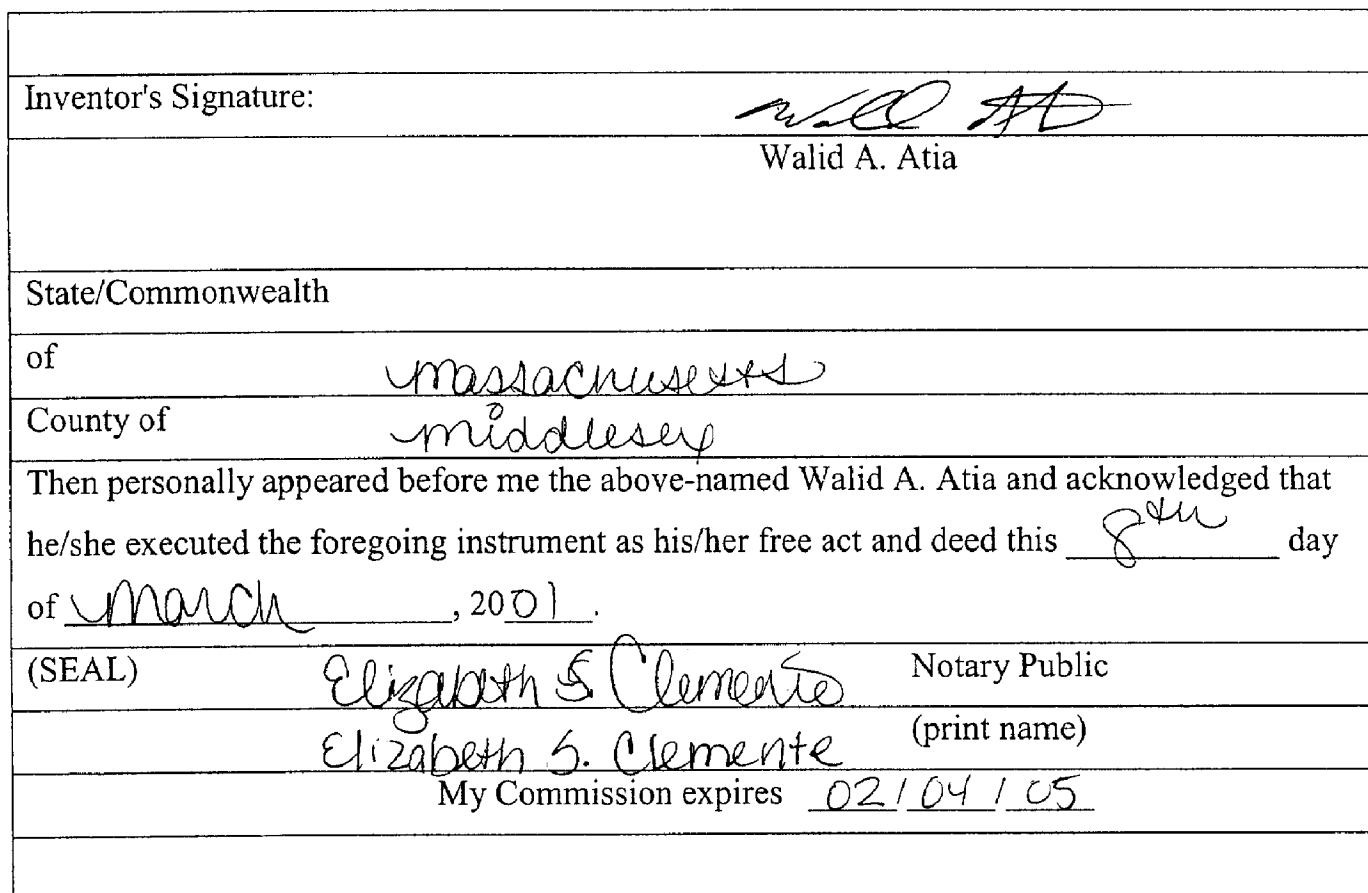 Inventor's Signature:
Walid A. Atia
State/Commonwealth
of Massachusetts
County of Middlesex
Then personally appeared before me the above-named Walid A. Atia and acknowledged that
he/she executed the foregoing instrument as his/her free act and deed this 8th day
of March, 2001.
(SEAL) Elizabeth S. Clemente Notary Public
Elizabeth S. Clemente (print name)
My Commission expires 02/04/05